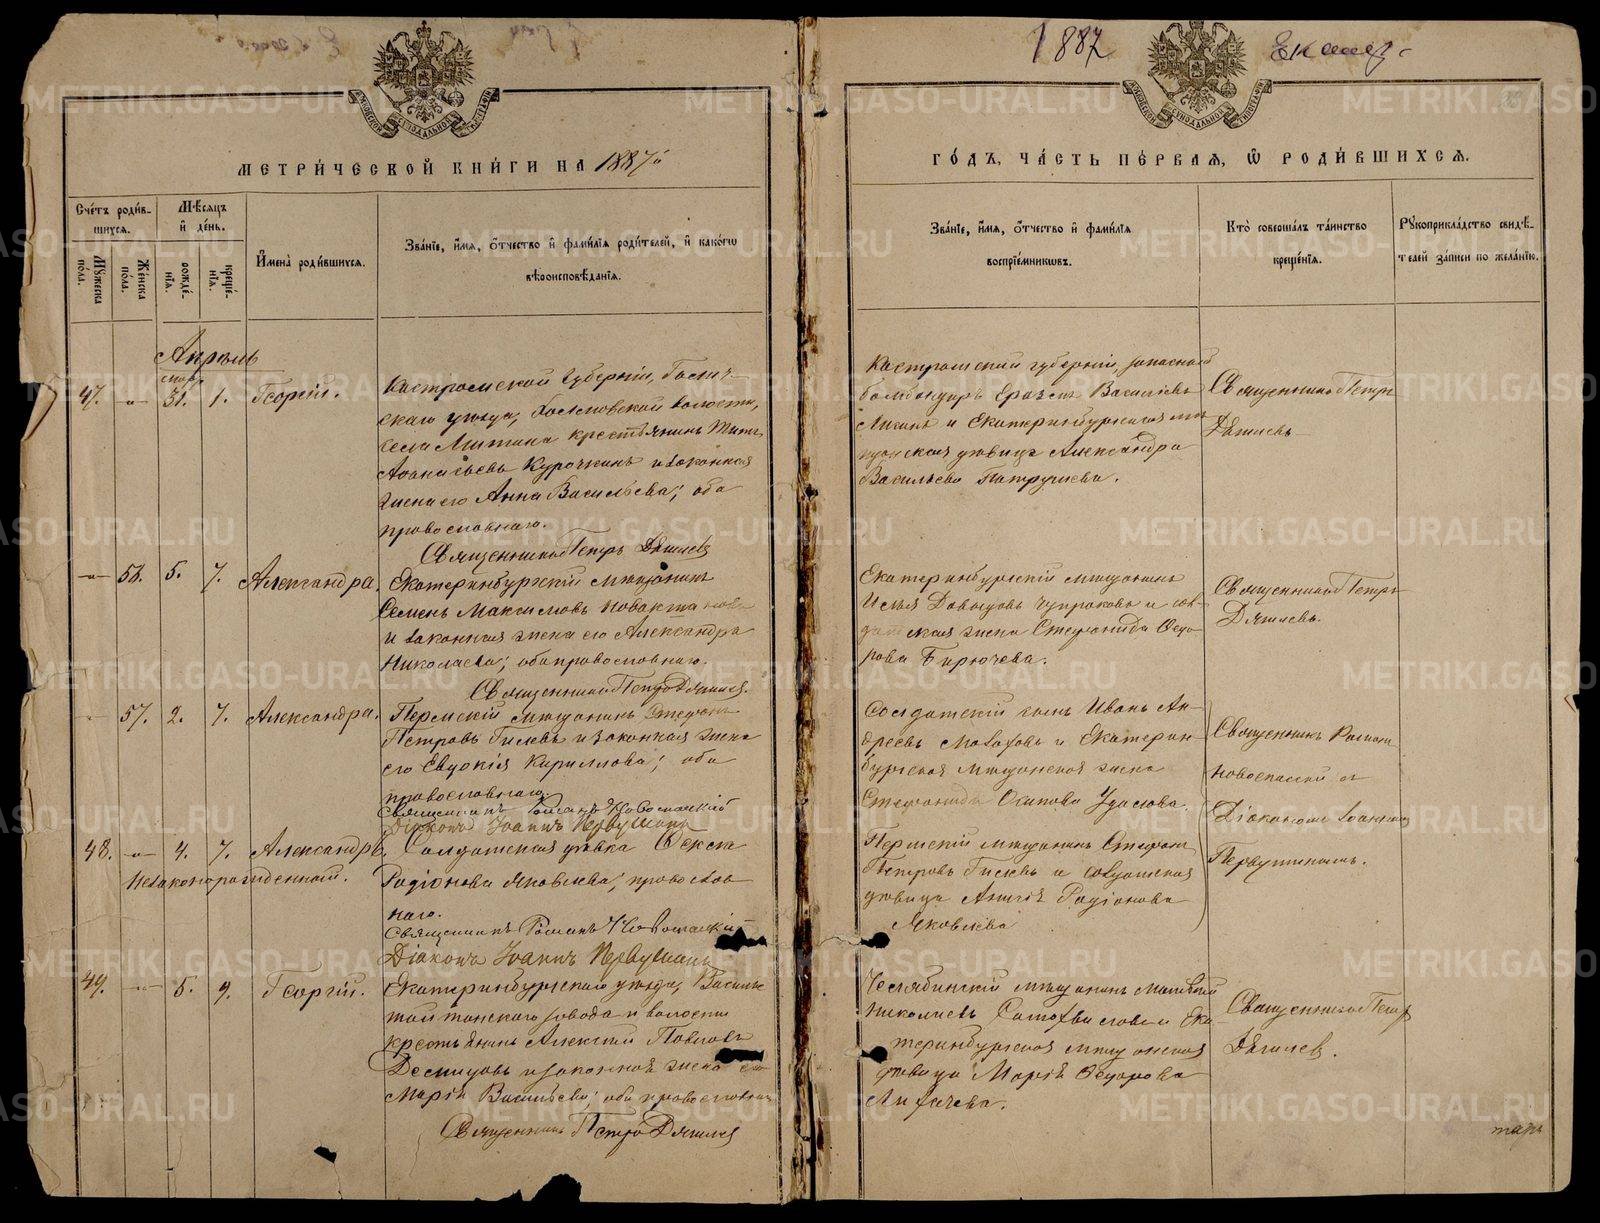 1887
Екатер-
МЕТРИ́ЧЕСКОЙ КНИ́ГИ НА 1887й
ГО́ДЪ, ЧА́СТЬ ПЕ́РВАЯ, Ѡ РОДИ́ВШИХСЯ.
Сче́тъ роди́в-
шихся.
Мѣ́сяцъ
и҆ де́нь.
Мꙋжеска
по́ла.
Же́нска
по́ла.
рожде́-
нїя.
креще́-
нїя.
И҆мена̀ роди́вшихся.
Зва́нїе, и҆́мя, ѻ҆́тчество и҆ фами́лїя роди́телей, и҆ како́гѡ
вѣроисповѣ́данїя.
Зва́нїе, и҆́мя, ѻ҆́тчество и҆ фами́лїя
воспрїе́мникѡвъ.
Кто̀ соверша́лъ та́инство
креще́нїя.
Рꙋкоприкла́дство свидѣ́-
телей за́писи по жела́нїю.
Апрѣль
март
47. -"- 31. 1. Георгій.
Костромской губерніи, Галич-
скаго уѣзда,
волости,
села Митина крестьянинъ Титъ
Аѳанасьевъ Курочкинъ и законная
жена его Анна Васильева; оба
православнаго.
Священникъ Петръ Дягилев
Костромской губерніи, запасный
бомбандиръ Еразмъ Васильевъ
и Екатеринбургская мѣ-
щанская дѣвица Александра
Васильева Патрушева.
Священникъ Петръ
Дягилевъ
-"- 56. 5. 7. Александра.
Екатеринбургскій мѣщанинъ
Семенъ Максимовъ
и законная жена его Александра
Николаева; оба православнаго.
Священникъ Петръ Дягилев.
Екатеринбургскій мѣщанинъ
Илья Давыдовъ Чупраковъ и сол-
датская жена Стефанида Ѳедо-
рова Бирючева.
Священникъ Петръ
Дягилевъ.
57. 2. 7. Александра.
Пермскій мѣщанинъ Стефанъ
Петровъ Гилевъ и законная жена
его Евдокія Кириллова; оба
православнаго.
Священникъ Романъ Новоспасскій
Діаконъ Іоаннъ Первушинъ
Солдатскій сынъ Иванъ Ан-
дреевъ и Екатерин-
бургская мѣщанская жена
Стефанида Осипова
Священникъ Роман
Новоспасскій с
Діакономъ Іоанном
Первушинымъ.
48. -"- 4. 7. Александръ.
Незаконорожденный.
Солдатская дѣвка Ѳекла
Родіонова Яковлева; православ
наго.
Священникъ Романъ Новоспасскій
Діаконъ Іоаннъ Первушинъ
Пермскій мѣщанинъ Стефанъ
Петровъ Гилевъ и солдатская
дѣвица Анисія Родіонова
Яковлева
49. -"- 5. 9. Георгій.
Екатеринбургскаго уѣзда, Василь
танскаго завода и волости
крестьянинъ Алексѣй Павловъ
Десятовъ и законная жена его
Марія Васильева; оба православнаго
Священникъ Петръ Дягилев
Челябинскій мѣщанинъ Матвѣй
Николаевъ и Ека-
теринбургская мѣщанская
дѣвица Марія Ѳедорова
Лихачева.
Священникъ Петръ
Дягилев.
METRIKI.GASO-URAL.RU